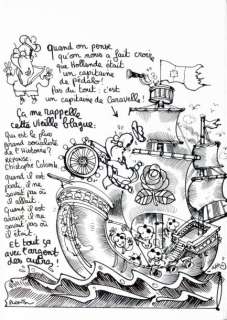 Quand on pense
qu'on nous a fait croire
que Hollande était
un capitaine
de pédalo!
Pas du tout: c'est
un capitaine de Caravelle!
Ça me rappelle
cette vieille blague:
Qui est le plus
grand socialiste
de l'Histoire?
réponse:
Christophe Colomb
quand il est
parti, il ne
savait pas où
il allait.
Quand il est
arrivé il ne
savait pas où
il était.
Et tout ça
avec l'argent
des autres!